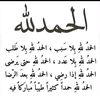 الحمد لله
الحمدُ لله بلا سبب ، الحمدُ لله بلا طلب
الحمدُ لله بلا عدد ، الحمدُ لله حتى يرضى
الحمدُ لله إذا رضي ، الحمدُ لله بعد الرضا
الحمدُ لله حمداً كثيراً طيباً مباركاً فيه